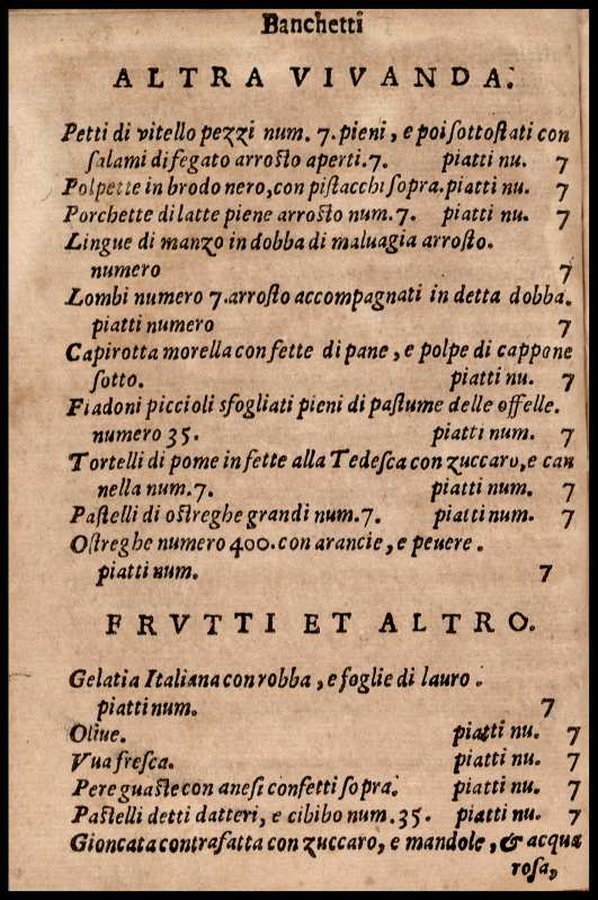 Banchetti
ALTRA VIVANDA.
Petti di vitello pezzi num. 7. pieni, e poi ſottoſtati con
ſalami di fegato arroſto aperti. 7. piatti nu. 7
Polpette in brodo nero, con piſtacchi ſopra. piatti nu. 7
Porchette di latte piene arroſto num. 7. piatti nu. 7
Lingue di manzo in dobba di maluagia arroſto.
numero 7
Lombi numero 7. arroſto accompagnati in detta dobba.
piatti numero 7
Capirotta morella con fette di pane, e polpe di cappone
ſotto. piatti nu. 7
Fiadoni piccioli sfogliati pieni di paſtume delle offelle.
numero 35. piatti num. 7
Tortelli di pome in fette alla Tedeſca con zuccaro, e can
nella num. 7. piatti num. 7
Paſtelli di oſtreghe grandi num. 7. piatti num. 7
Oſtreghe numero 400. con arancie, e peuere.
piatti num. 7
FRVTTI ET ALTRO.
Gelatia Italiana con robba, e foglie di lauro.
piatti num. 7
Oliue. piatti nu. 7
Vua freſca. piatti nu. 7
Pere guaſte con aneſi confetti ſopra. piatti nu. 7
Paſtelli detti datteri, e cibibo num. 35. piatti nu. 7
Gioncata contrafatta con zuccaro, e mandole, & acqua
roſa,